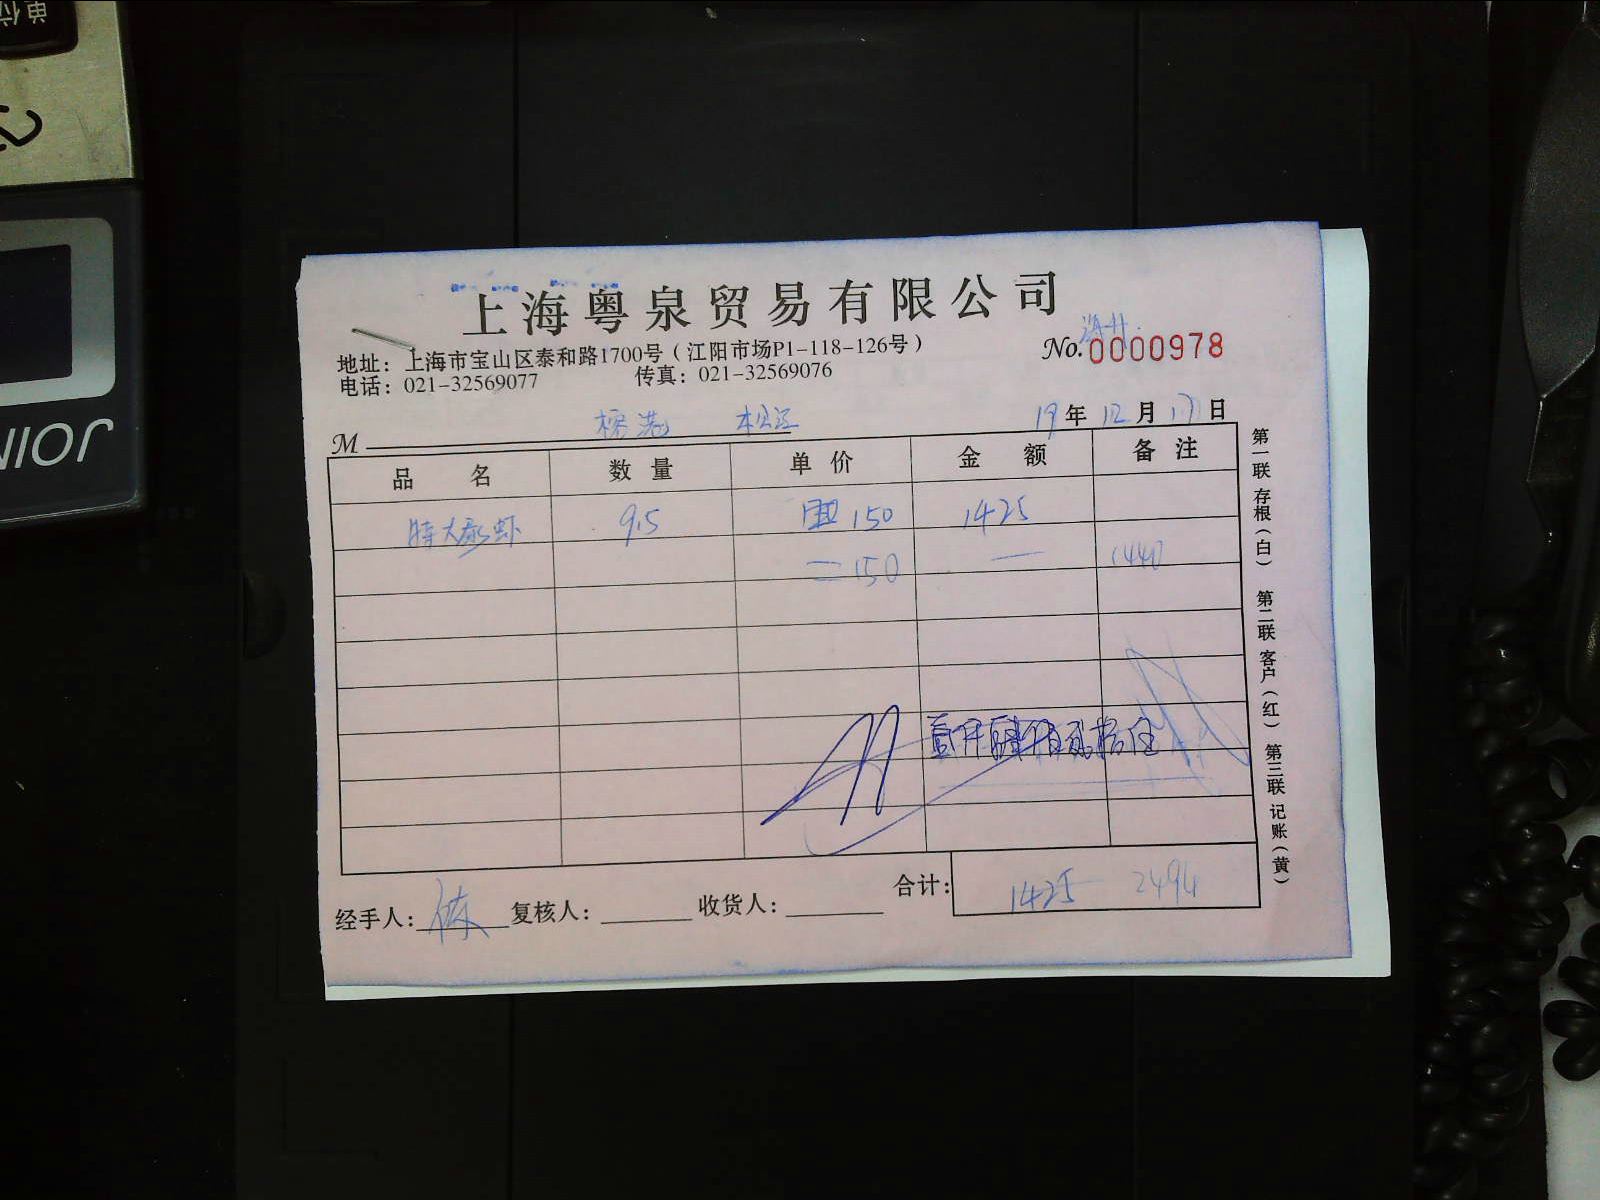 单位
JOIN
上海粤泉贸易有限公司
地址：上海市宝山区泰和路1700号（江阳市场P1-118-126号）
No. 0000978
电话：021-32569077 传真：021-32569076
M 松江 19年12月17日
品名 数量 单价 金额 备注
特大泰虾 9.5 150 1425
150 — 1440
合计：1425 2494
经手人： 复核人： 收货人：
第一联 存根（白） 第二联 客户（红） 第三联 记账（黄）